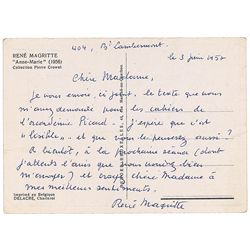 RENÉ MAGRITTE
"Anne-Marie" (1956)
Collection Pierre Crowet
404, Bd Lambermont.
le 3 juin 1957
Chère Madame,
Je vous envoie, ci joint, le texte que vous
m'avez demandé pour les cahiers de
l'académie Picard. J'espère que c'est
"lisible" et que vous le penserez aussi ?
A bientôt, à la prochaine séance (dont
j'attends l'avis que vous voudrez bien
m'envoyer) et croyez chère Madame à
mes meilleurs sentiments.
René Magritte
Imprimé en Belgique
DELACRE, Charleroi